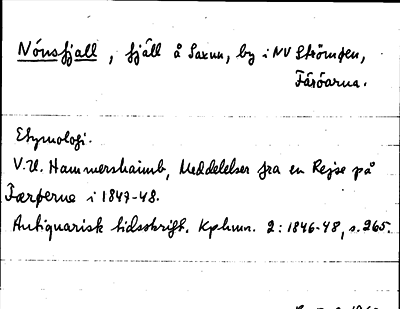 Nónsfjall, fjäll å Saxun, by i NV Strömöen,
Färöarna.
Etymologi.
V.U. Hammershaimb, Meddelelser fra en Rejse på
Færøerne i 1847-48.
Antiquarisk tidsskrift. Kphmn. 2: 1846-48, s. 265.